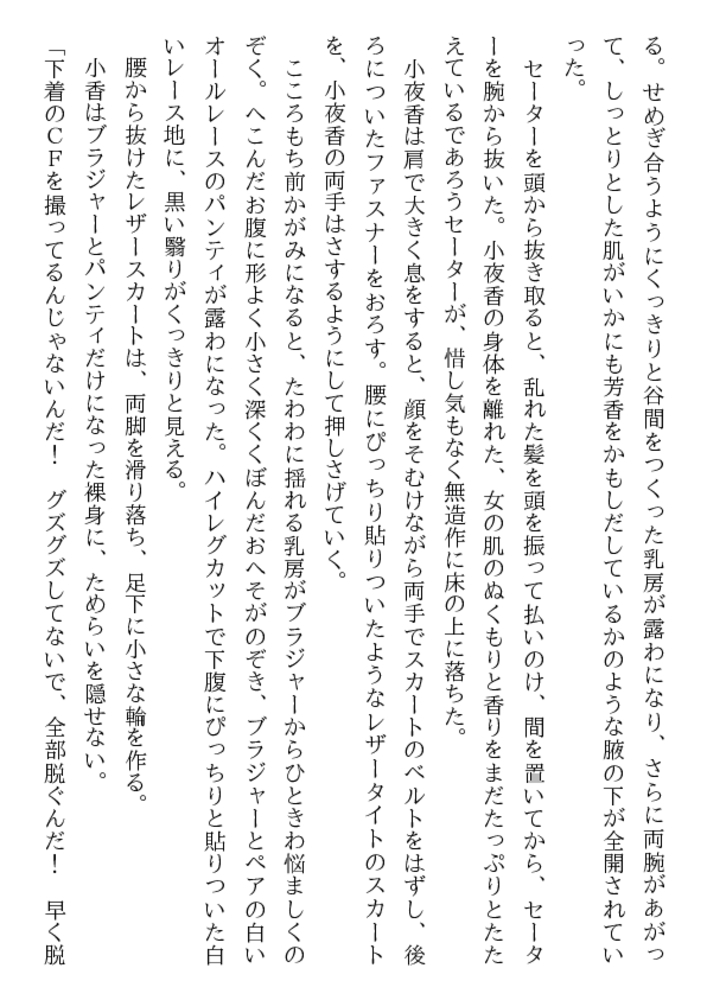 る。せめぎ合うようにくっきりと谷間をつくった乳房が露わになり、さらに両腕があがっ
て、しっとりとした肌がいかにも芳香をかもしだしているかのような腋の下が全開されてい
った。
　セーターを頭から抜き取ると、乱れた髪を頭を振って払いのけ、間を置いてから、セータ
ーを腕から抜いた。小夜香の身体を離れた、女の肌のぬくもりと香りをまだたっぷりとたた
えているであろうセーターが、惜し気もなく無造作に床の上に落ちた。
　小夜香は肩で大きく息をすると、顔をそむけながら両手でスカートのベルトをはずし、後
ろについたファスナーをおろす。腰にぴっちり貼りついたようなレザータイトのスカート
を、小夜香の両手はさするようにして押しさげていく。
　こころもち前かがみになると、たわわに揺れる乳房がブラジャーからひときわ悩ましくの
ぞく。へこんだお腹に形よく小さく深くくぼんだおへそがのぞき、ブラジャーとペアの白い
オールレースのパンティが露わになった。ハイレグカットで下腹にぴっちりと貼りついた白
いレース地に、黒い翳りがくっきりと見える。
　腰から抜けたレザースカートは、両脚を滑り落ち、足下に小さな輪を作る。
　小香はブラジャーとパンティだけになった裸身に、ためらいを隠せない。
「下着のＣＦを撮ってるんじゃないんだ！　グズグズしてないで、全部脱ぐんだ！　早く脱